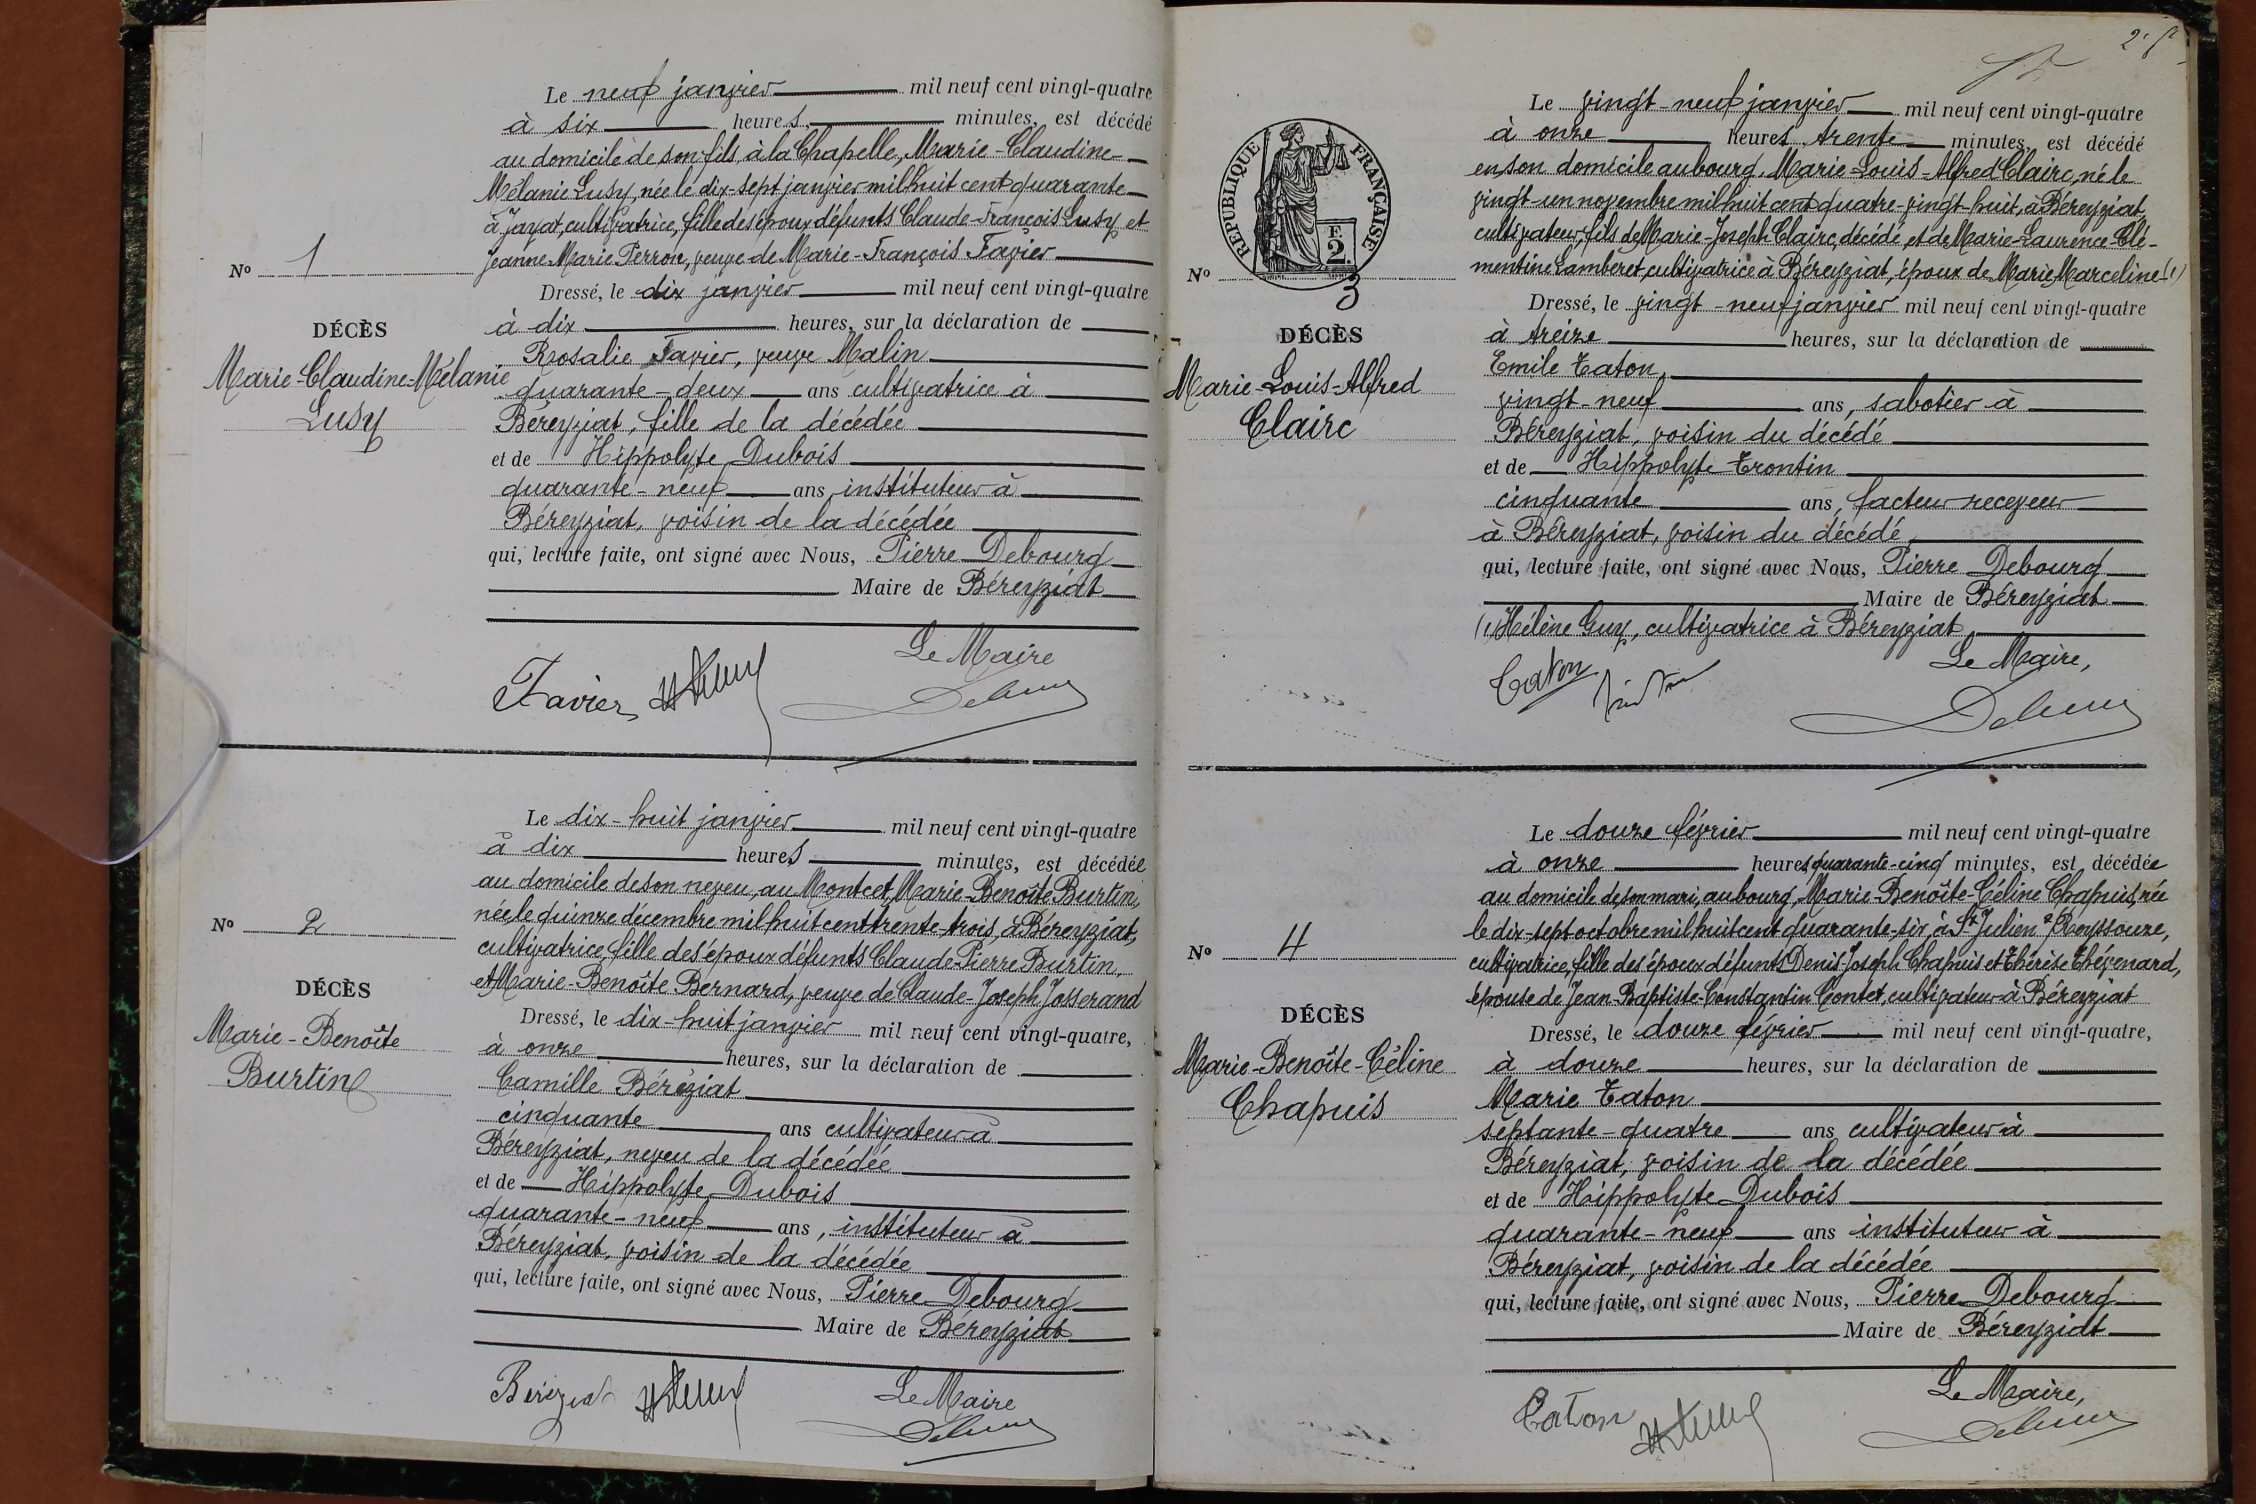 Le neuf janvier mil neuf cent vingt-quatre
à six heures, minutes, est décédé
au domicile de son fils, à la Chapelle, Marie-Claudine-
Mélanie Lusy, née le dix-sept janvier mil huit cent quarante
à Jayat, cultivatrice, fille des époux défunts Claude-François Lusy et
Jeanne Marie Perron, veuve de Marie-François Favier
Nº 1
Dressé, le dix janvier mil neuf cent vingt-quatre
à dix heures, sur la déclaration de
DÉCÈS
Marie-Claudine-Mélanie
Lusy
Rosalie Favier, veuve Malin
quarante-deux ans cultivatrice à
Béreyziat, fille de la décédée
et de Hippolyte Dubois
quarante-neuf ans, instituteur à
Béreyziat, voisin de la décédée
qui, lecture faite, ont signé avec Nous, Pierre Debourg
Maire de Béreyziat
Le Maire
Favier
Le dix-huit janvier mil neuf cent vingt-quatre
à dix heures minutes, est décédée
au domicile de son neveu, au Montcet, Marie-Benoîte Burtin,
née le quinze décembre mil huit cent trente-trois, à Béreyziat,
cultivatrice, fille des époux défunts Claude-Pierre Burtin,
et Marie-Benoîte Bernard, veuve de Claude-Joseph Josserand
Nº 2
DÉCÈS
Marie-Benoîte
Burtin
Dressé, le dix-huit janvier mil neuf cent vingt-quatre,
à onze heures, sur la déclaration de
Camille Béréziat
cinquante ans cultivateur à
Béreyziat, neveu de la décédée
et de Hippolyte Dubois
quarante-neuf ans, instituteur à
Béreyziat, voisin de la décédée
qui, lecture faite, ont signé avec Nous, Pierre Debourg
Maire de Béreyziat
Le Maire
Béréziat
Le vingt-neuf janvier mil neuf cent vingt-quatre
à onze heures trente minutes, est décédé
en son domicile au bourg, Marie-Louis-Alfred Clairc, né le
vingt-un novembre mil huit cent quatre-vingt-huit, à Béreyziat,
cultivateur, fils de Marie-Joseph Clairc, décédé et de Marie-Laurence-Clé-
mentine Lamberet, cultivatrice à Béreyziat, époux de Marie Marceline (1)
RÉPUBLIQUE FRANÇAISE
F.
2.
Nº 3
DÉCÈS
Marie-Louis-Alfred
Clairc
Dressé, le vingt-neuf janvier mil neuf cent vingt-quatre
à treize heures, sur la déclaration de
Emile Taton,
vingt-neuf ans, sabotier à
Béreyziat, voisin du décédé
et de Hippolyte Trontin
cinquante ans, facteur receveur
à Béreyziat, voisin du décédé
qui, lecture faite, ont signé avec Nous, Pierre Debourg
Maire de Béreyziat
(1) Hélène Guy, cultivatrice à Béreyziat
Le Maire,
Taton
Le douze février mil neuf cent vingt-quatre
à onze heures quarante-cinq minutes, est décédée
au domicile de son mari, au bourg, Marie-Benoîte-Céline Chapuis, née
le dix-sept octobre mil huit cent quarante-six, à St Julien s/ Reyssouze,
cultivatrice, fille des époux défunts Denis-Joseph Chapuis et Thérèse Thévenard,
épouse de Jean-Baptiste-Constantin Contet, cultivateur à Béreyziat
Nº 4
DÉCÈS
Marie-Benoîte-Céline
Chapuis
Dressé, le douze février mil neuf cent vingt-quatre,
à douze heures, sur la déclaration de
Marie Taton
septante-quatre ans, cultivateur à
Béreyziat, voisin de la décédée
et de Hippolyte Dubois
quarante-neuf ans instituteur à
Béreyziat, voisin de la décédée
qui, lecture faite, ont signé avec Nous, Pierre Debourg
Maire de Béreyziat
Le Maire,
Taton